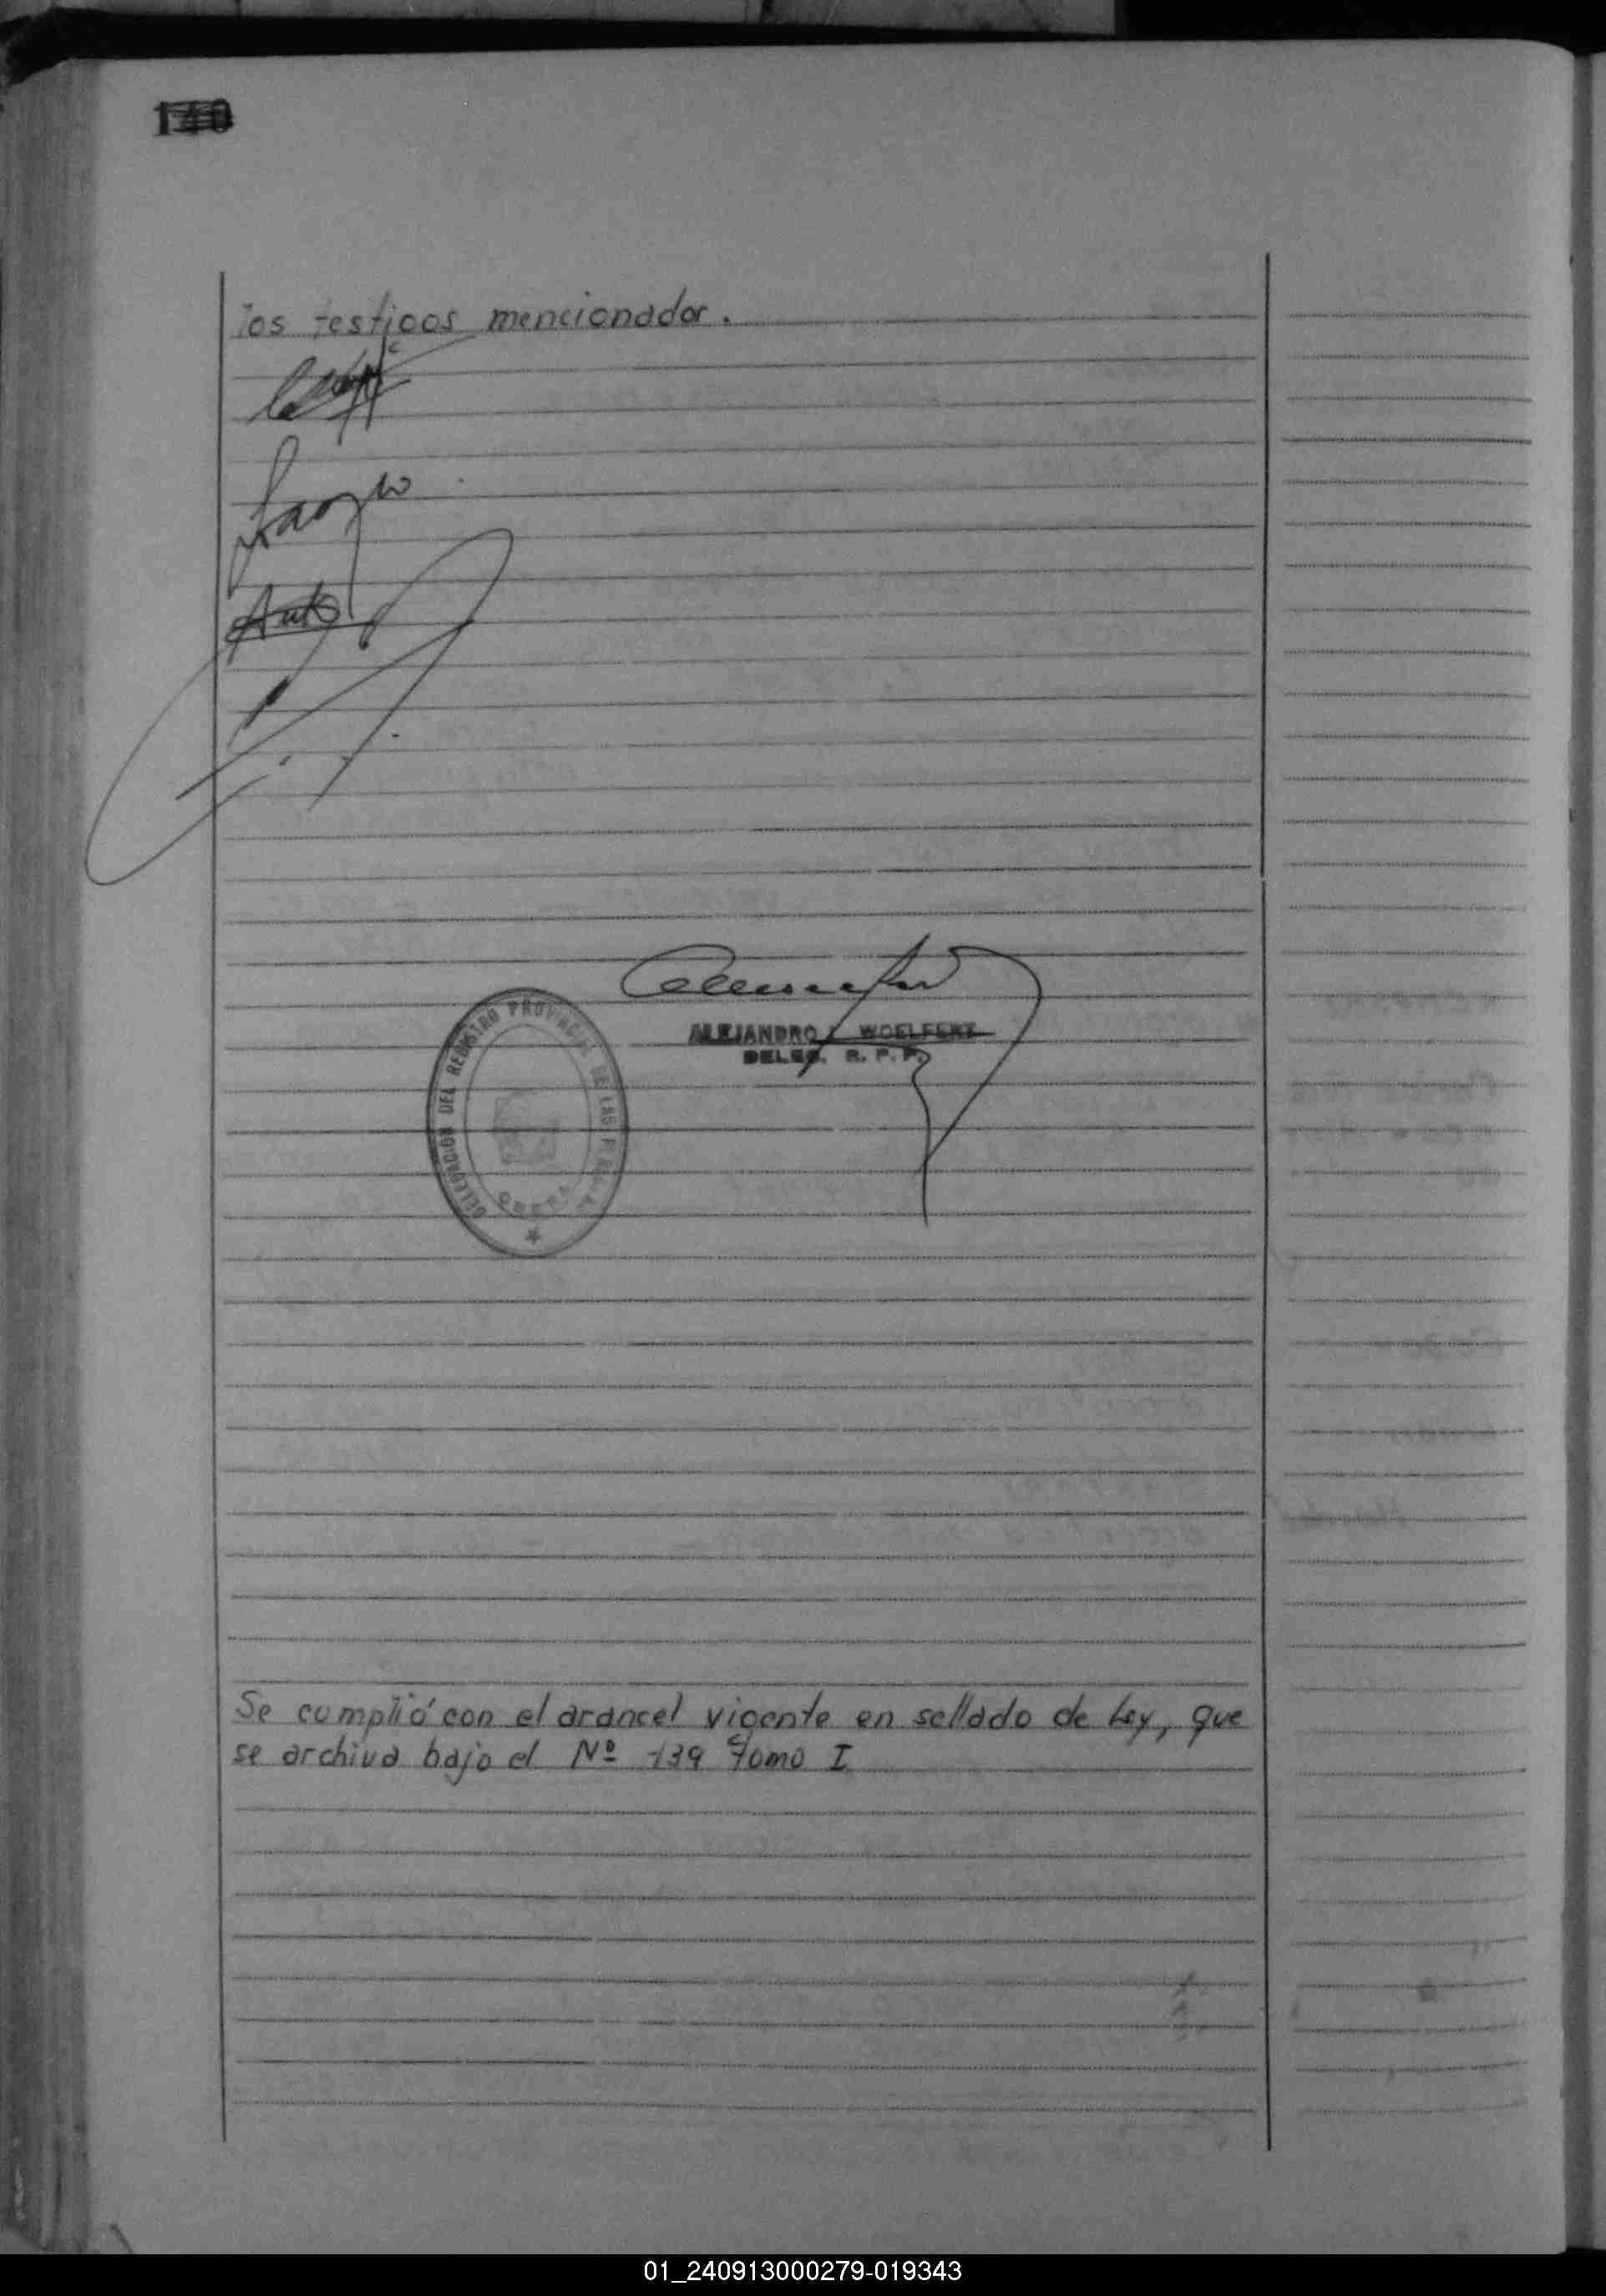 140
los testigos mencionados.
ALEJANDRO L. WOELFERT
DELEG. R. P. P.
DELEGACION DEL REGISTRO PROVINCIAL DE LAS PERS.
OBERA
Se cumplió con el arancel vigente en sellado de Ley, que
se archiva bajo el Nº 139 Tomo I
01_240913000279-019343